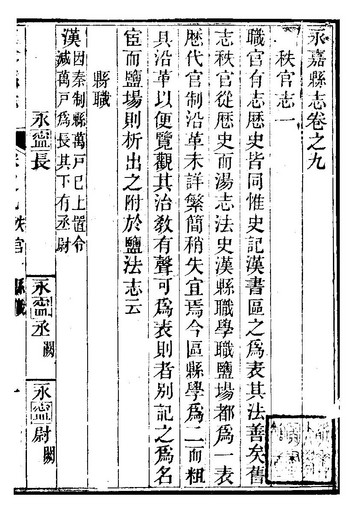 永嘉縣志卷之九
秩官志一
職官有志歷史皆同惟史記漢書區之為表其法善矣舊
志秩官從歷史而湯志法史漢縣職學職鹽場都為一表
歷代官制沿革未詳繁簡稍失宜焉今區縣學為二而粗
具沿革以便覽觀其治教有聲可為表則者別記之為名
宦而鹽場則析出之附於鹽法志云
縣職
漢 因秦制縣萬戶已上置令
減萬戶為長其下有丞尉
永寧長 永寧丞闕 永寧尉闕